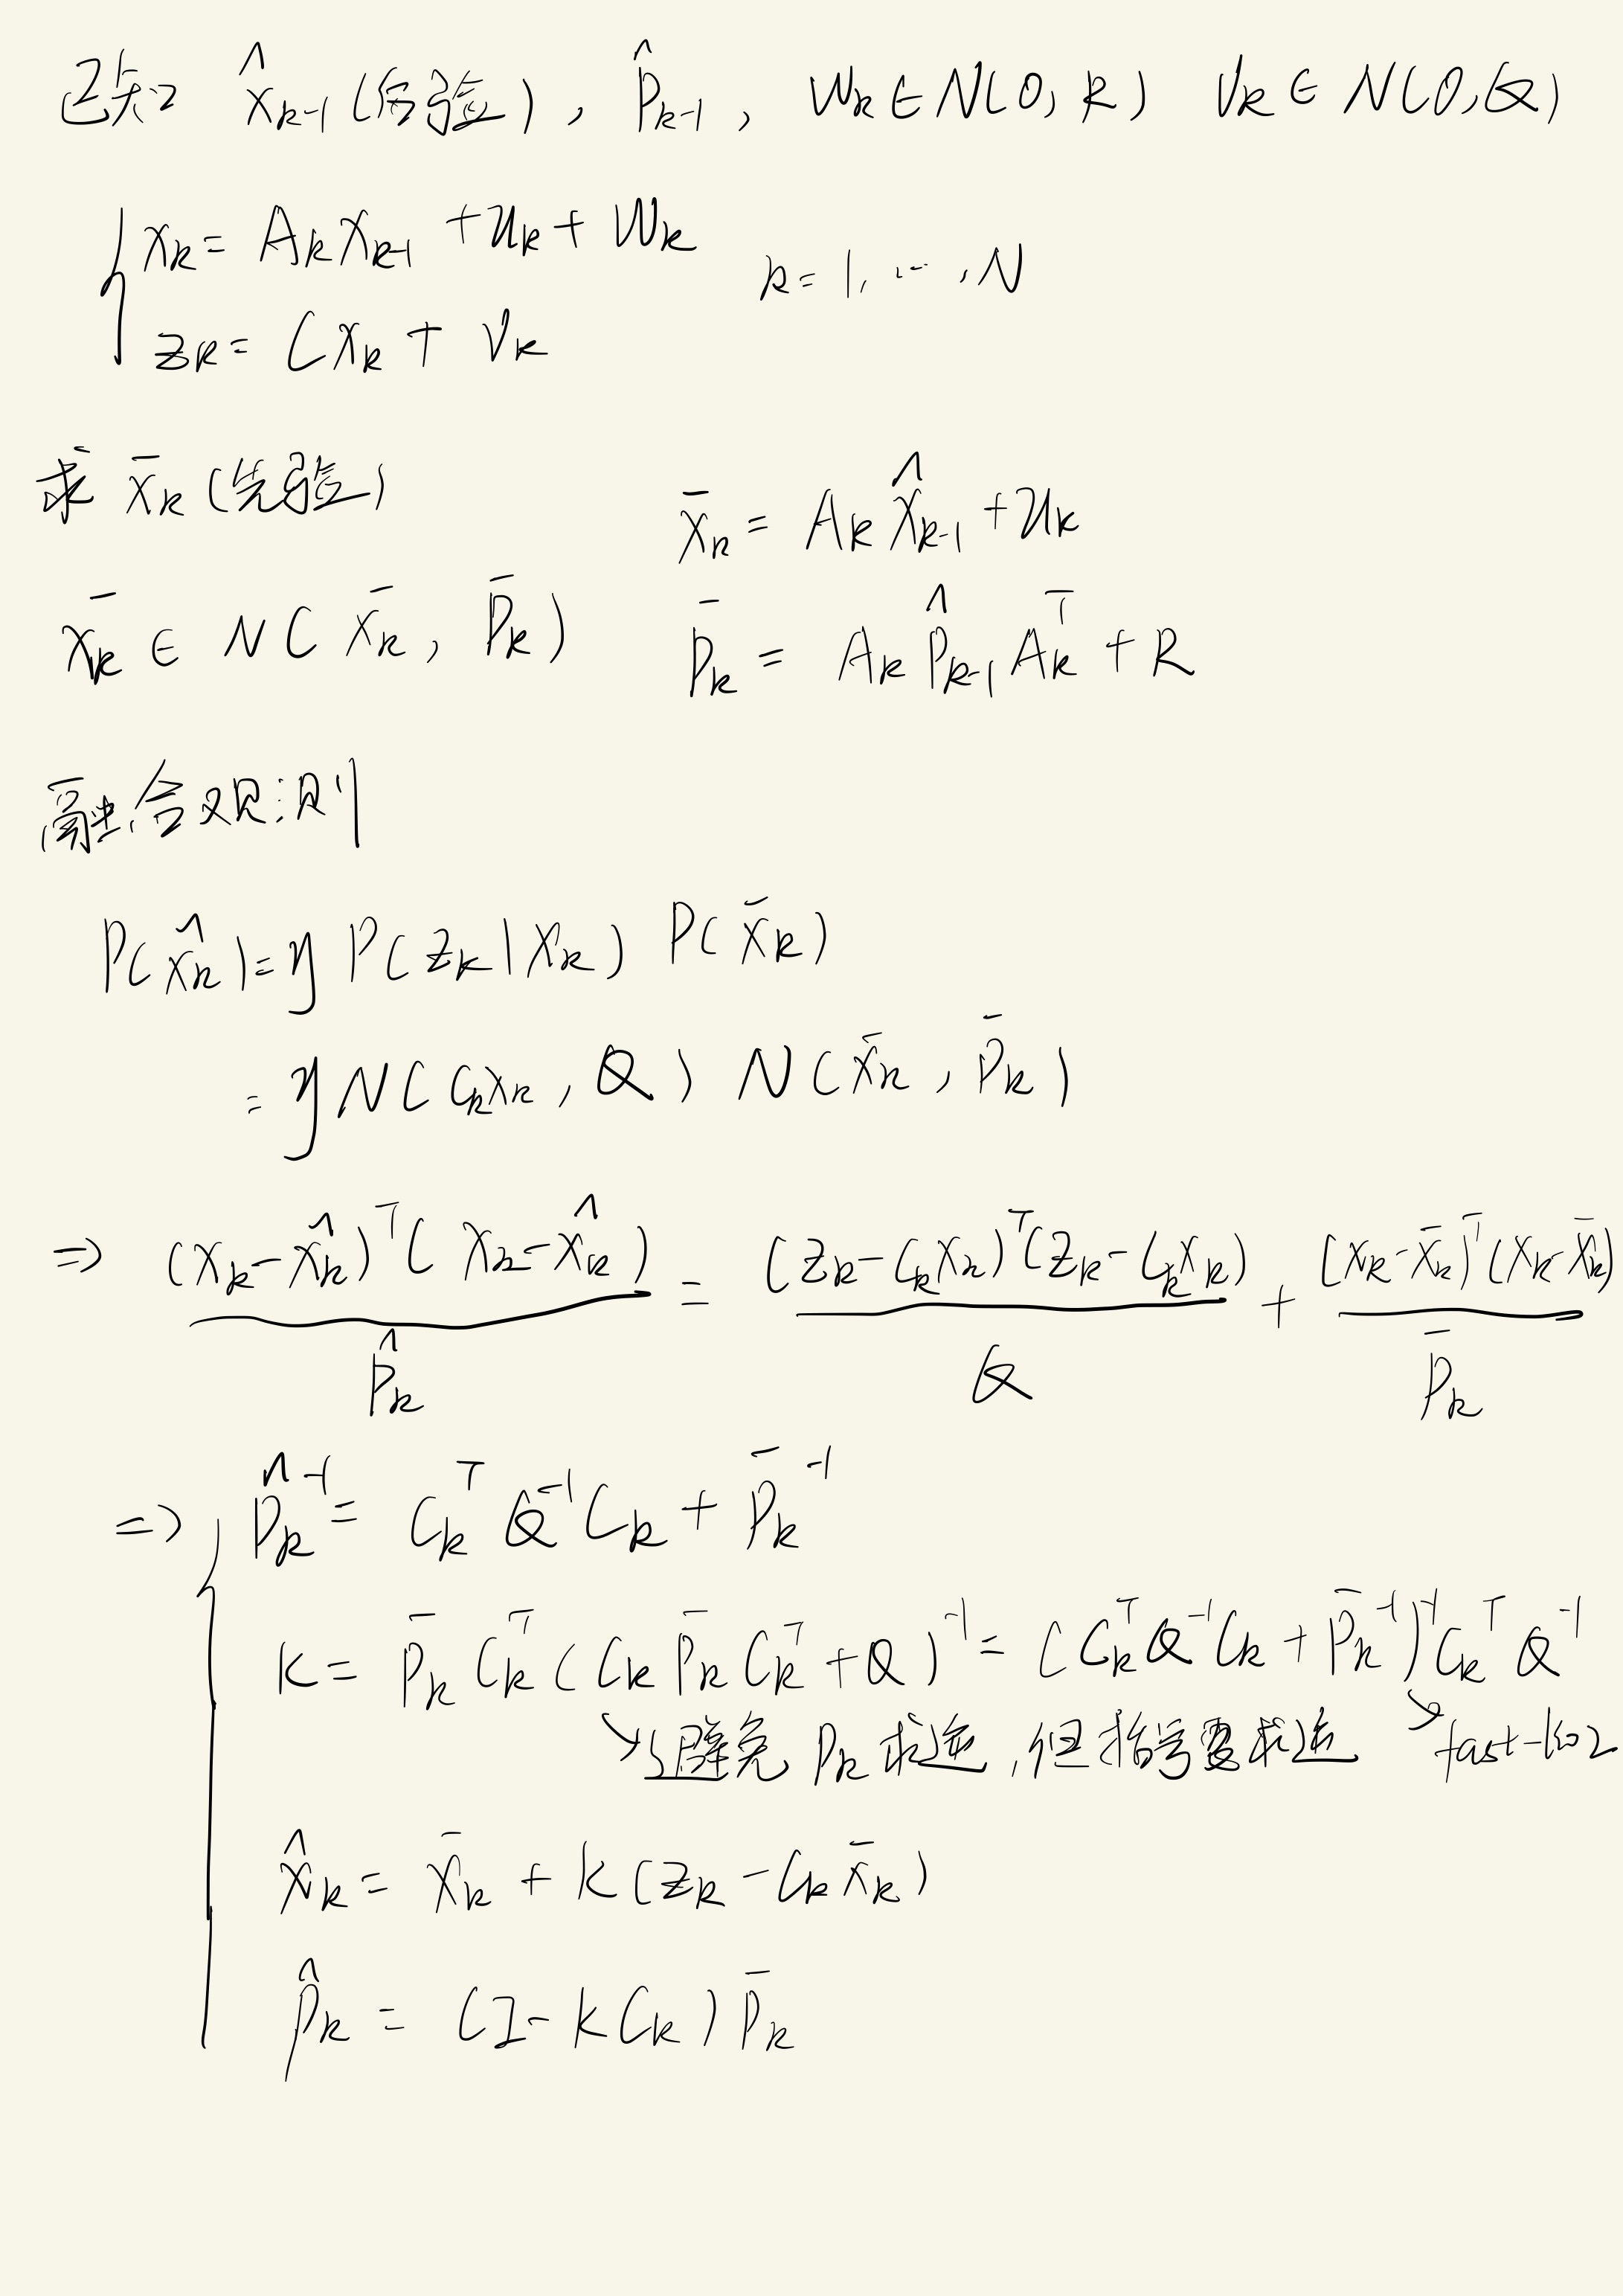 已知 x̂ₖ₋₁(后验), P̂ₖ₋₁, wₖ∈N(0,R) vₖ∈N(0,Q)
{ xₖ = Aₖxₖ₋₁ + uₖ + wₖ
zₖ = Cxₖ + vₖ
k=1,…,N
求 x̄ₖ(先验)
x̄ₖ = Aₖx̂ₖ₋₁ + uₖ
x̄ₖ ∈ N(x̄ₖ, P̄ₖ)
P̄ₖ = AₖP̂ₖ₋₁Aₖᵀ + R
融合观测
P(x̂ₖ) = η P(zₖ|xₖ) P(x̄ₖ)
= η N(Cₖxₖ, Q) N(x̄ₖ, P̄ₖ)
=> (xₖ-x̂ₖ)ᵀ(xₖ-x̂ₖ) / P̂ₖ = (zₖ-Cₖxₖ)ᵀ(zₖ-Cₖxₖ) / Q + (xₖ-x̄ₖ)ᵀ(xₖ-x̄ₖ) / P̄ₖ
=> { P̂ₖ⁻¹ = CₖᵀQ⁻¹Cₖ + P̄ₖ⁻¹
K = P̄ₖCₖᵀ(CₖP̄ₖCₖᵀ+Q)⁻¹ = (CₖᵀQ⁻¹Cₖ + P̄ₖ⁻¹)⁻¹CₖᵀQ⁻¹
↘ 避免 Pₖ 求逆,但括号要求逆 ↘ fast-lio2
x̂ₖ = x̄ₖ + K(zₖ - Cₖx̄ₖ)
P̂ₖ = (I - KCₖ)P̄ₖ